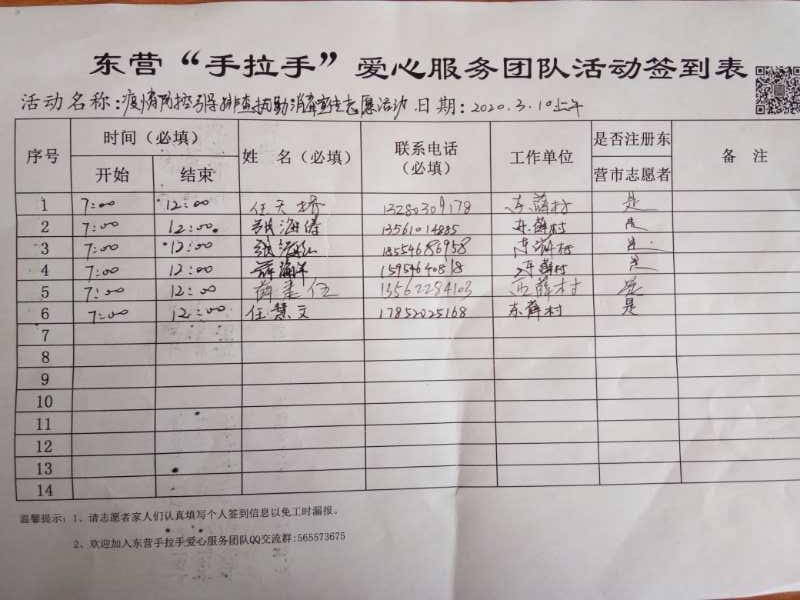 东营“手拉手”爱心服务团队活动签到表
活动名称:疫情防控引导排查协助消毒宣传志愿活动 日期:2020.3.10上午
序号 时间（必填） 姓 名（必填） 联系电话（必填） 工作单位 是否注册东营市志愿者 备 注
开始 结束
1 7:00 12:00 任天桥 13280309178 东薛村 是
2 7:00 12:00 张海涛 13561014835 东薛村 是
3 7:00 12:00 张海红 18554686958 东薛村 是
4 7:00 12:00 薛海洋 东薛村 是
5 7:00 12:00 13562284103 西薛村 是
6 7:00 12:00 任慧文 17852025168 东薛村 是
7
8
9
10
11
12
13
14
温馨提示：1、请志愿者家人们认真填写个人签到信息以免工时漏报。
2、欢迎加入东营手拉手爱心服务团队QQ交流群:565573675